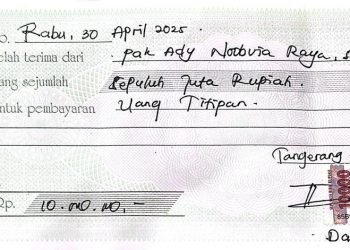 o. Rabu, 30 April 2025.
elah terima dari : pak Ady Noobvia Raya, S
ang sejumlah Sepuluh Juta Rupiah.
ntuk pembayaran Uang Titipan.
Tangerang
10000
Rp. 10.000.000,-
Da